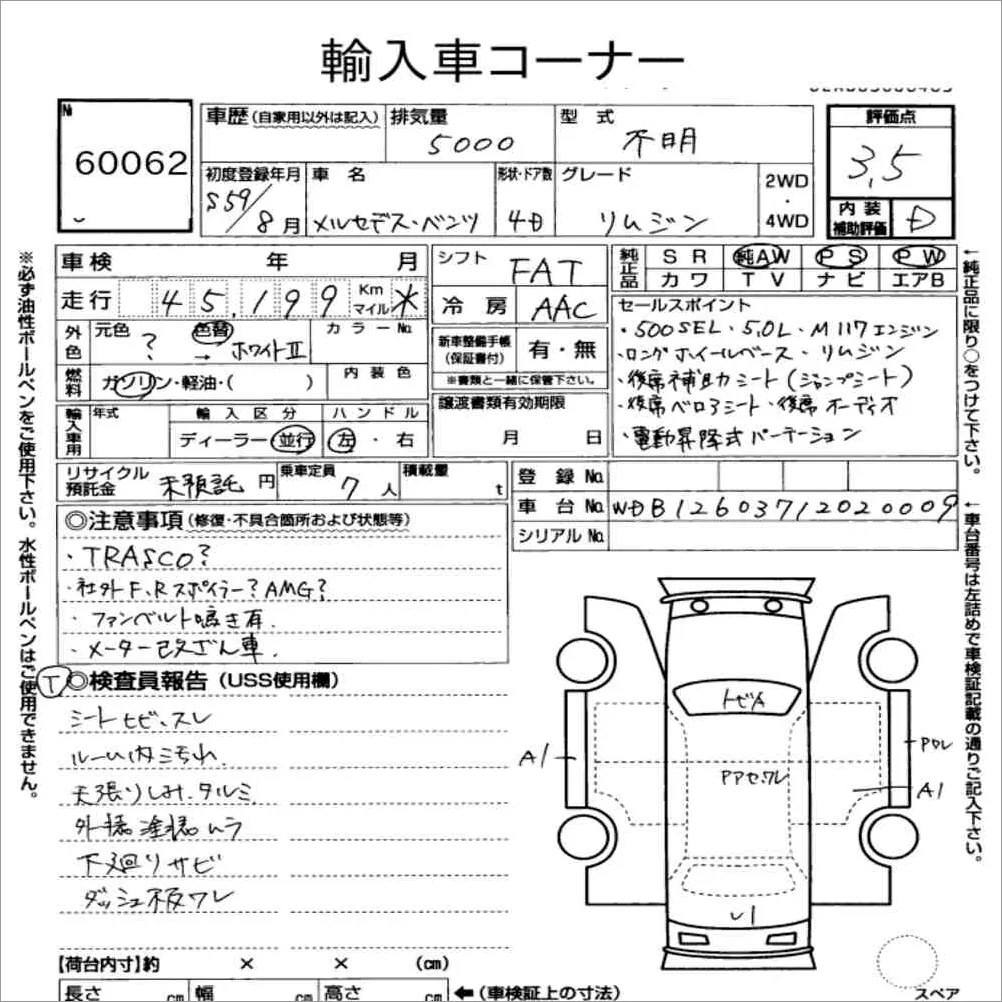 輸入車コーナー
№
60062
車歴 (自家用以外は記入)
排気量
5000
型 式
不明
評価点
3,5
初度登録年月
S59/8月
車 名
メルセデス・ベンツ
形状・ドア数
4D
グレード
リムジン
2WD
・
4WD
内 装
補助評価
D
車 検 年 月
シフト
FAT
純正品
S R 純AW P S P W
カ ワ T V ナ ビ エアB
走行 45,199 Km マイル ＊
冷 房
AAC
セールスポイント
・500SEL・5.0L・M117エンジン
・ロングホイールベース・リムジン
・後席補助シート(ジャンプシート)
・後席ベロアシート・後席オーディオ
・電動昇降式パーテーション
外色
元色
?
色替
→ ホワイトⅡ
カラーNo.
新車整備手帳
(保証書付)
有・無
※書類と一緒に保管下さい。
燃料
ガソリン・軽油・( )
内 装 色
輸入車用
年式
輸 入 区 分
ディーラー・並行
ハ ン ド ル
左 ・ 右
譲渡書類有効期限
月 日
リサイクル
預託金
未預託 円
乗車定員
7人
積載量
t
登 録 No.
車 台 No. WDB12603712020009
シリアル No.
◎注意事項 (修復・不具合箇所および状態等)
・TRASCO?
・社外F,Rスポイラー?AMG?
・ファンベルト鳴き有.
・メーター改ざん車.
T
◎検査員報告 (USS使用欄)
シートヒビ、スレ
ルーム内汚れ.
天張りしみ、タルミ.
外装塗装ムラ
下廻りサビ
ダッシュ板ワレ
トビA
A1
PPセワレ
Pワレ
A1
U1
スペア
【荷台内寸】約 × × (cm)
長さ cm 幅 cm 高さ cm ←(車検証上の寸法)
※必ず油性ボールペンをご使用下さい。水性ボールペンはご使用できません。
←純正品に限り○をつけて下さい。
←車台番号は左詰めで車検証記載の通りご記入下さい。